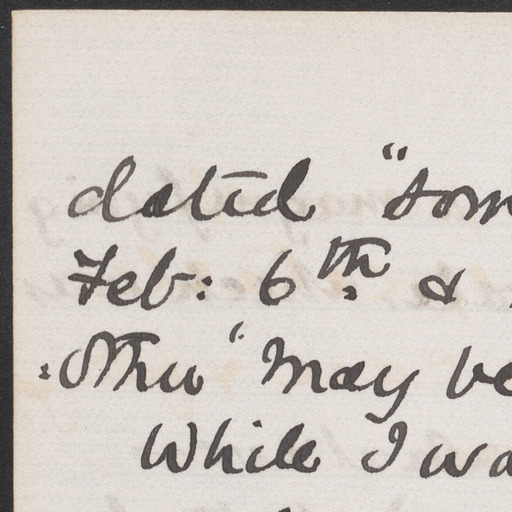 dated "som
Feb: 6th &
other" may be
While I wa